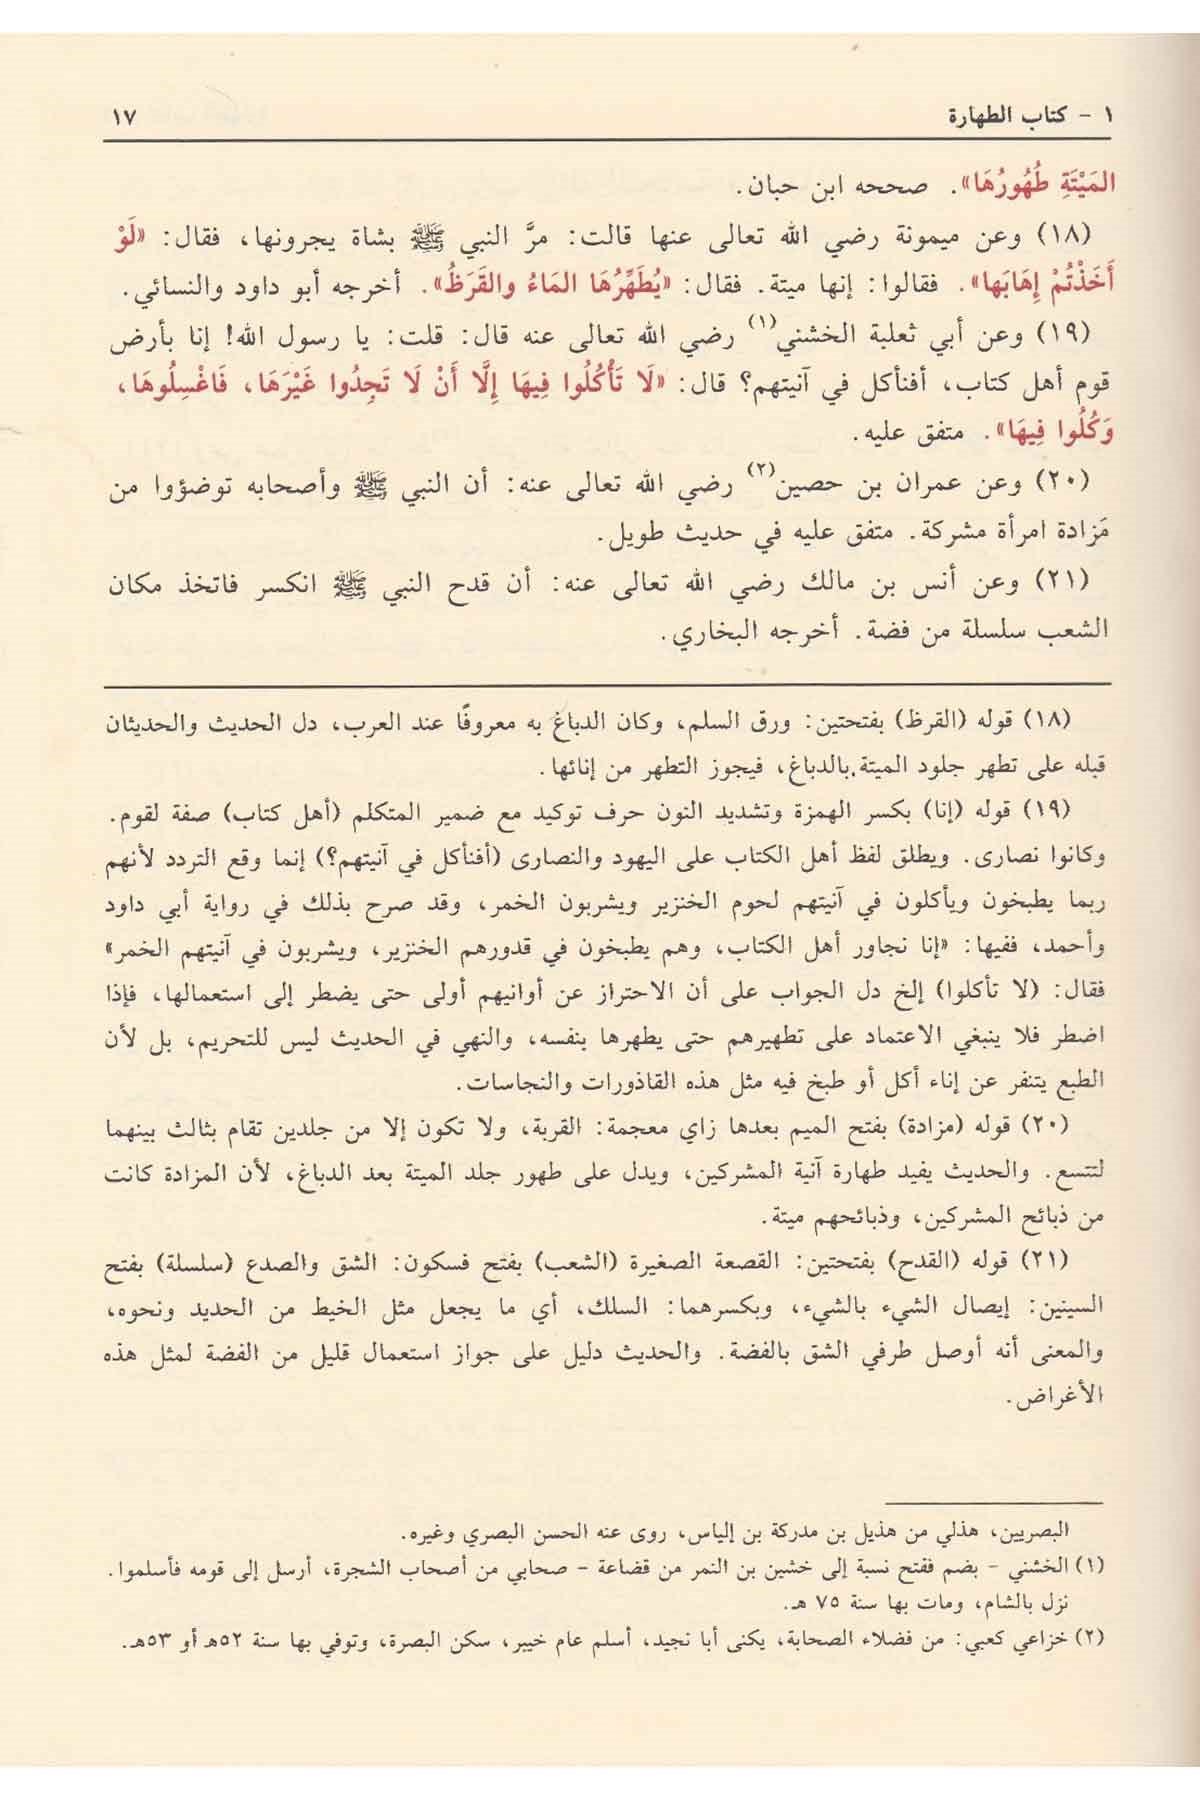 ١ - كتاب الطهارة ١٧
المَيْتَةِ طُهُورُهَا». صححه ابن حبان.
(١٨) وعن ميمونة رضي الله تعالى عنها قالت: مرَّ النبي ﷺ بشاة يجرونها، فقال: «لَوْ
أَخَذْتُمْ إِهَابَها». فقالوا: إنها ميتة. فقال: «يُطَهِّرُهَا المَاءُ والقَرَظُ». أخرجه أبو داود والنسائي.
(١٩) وعن أبي ثعلبة الخشني(١) رضي الله تعالى عنه قال: قلت: يا رسول الله! إنا بأرض
قوم أهل كتاب، أفنأكل في آنيتهم؟ قال: «لَا تَأْكُلُوا فِيهَا إِلَّا أَنْ لَا تَجِدُوا غَيْرَهَا، فَاغْسِلُوهَا،
وَكُلُوا فِيهَا». متفق عليه.
(٢٠) وعن عمران بن حصين(٢) رضي الله تعالى عنه: أن النبي ﷺ وأصحابه توضؤوا من
مَزادة امرأة مشركة. متفق عليه في حديث طويل.
(٢١) وعن أنس بن مالك رضي الله تعالى عنه: أن قدح النبي ﷺ انكسر فاتخذ مكان
الشعب سلسلة من فضة. أخرجه البخاري.
(١٨) قوله (القرظ) بفتحتين: ورق السلم، وكان الدباغ به معروفًا عند العرب، دل الحديث والحديثان
قبله على تطهر جلود الميتة بالدباغ، فيجوز التطهر من إنائها.
(١٩) قوله (إنا) بكسر الهمزة وتشديد النون حرف توكيد مع ضمير المتكلم (أهل كتاب) صفة لقوم.
وكانوا نصارى. ويطلق لفظ أهل الكتاب على اليهود والنصارى (أفنأكل في آنيتهم؟) إنما وقع التردد لأنهم
ربما يطبخون ويأكلون في آنيتهم لحوم الخنزير ويشربون الخمر، وقد صرح بذلك في رواية أبي داود
وأحمد، ففيها: «إنا نجاور أهل الكتاب، وهم يطبخون في قدورهم الخنزير، ويشربون في آنيتهم الخمر»
فقال: (لا تأكلوا) إلخ دل الجواب على أن الاحتراز عن أوانيهم أولى حتى يضطر إلى استعمالها، فإذا
اضطر فلا ينبغي الاعتماد على تطهيرهم حتى يطهرها بنفسه، والنهي في الحديث ليس للتحريم، بل لأن
الطبع يتنفر عن إناء أكل أو طبخ فيه مثل هذه القاذورات والنجاسات.
(٢٠) قوله (مزادة) بفتح الميم بعدها زاي معجمة: القربة، ولا تكون إلا من جلدين تقام بثالث بينهما
لتتسع. والحديث يفيد طهارة آنية المشركين، ويدل على طهور جلد الميتة بعد الدباغ، لأن المزادة كانت
من ذبائح المشركين، وذبائحهم ميتة.
(٢١) قوله (القدح) بفتحتين: القصعة الصغيرة (الشعب) بفتح فسكون: الشق والصدع (سلسلة) بفتح
السينين: إيصال الشيء بالشيء، وبكسرهما: السلك، أي ما يجعل مثل الخيط من الحديد ونحوه،
والمعنى أنه أوصل طرفي الشق بالفضة. والحديث دليل على جواز استعمال قليل من الفضة لمثل هذه
الأغراض.
البصريين، هذلي من هذيل بن مدركة بن إلياس، روى عنه الحسن البصري وغيره.
(١) الخشني - بضم ففتح نسبة إلى خشين بن النمر من قضاعة - صحابي من أصحاب الشجرة، أرسل إلى قومه فأسلموا.
نزل بالشام، ومات بها سنة ٧٥ هـ.
(٢) خزاعي كعبي: من فضلاء الصحابة، يكنى أبا نجيد، أسلم عام خيبر، سكن البصرة، وتوفي بها سنة ٥٢هـ أو ٥٣هـ.